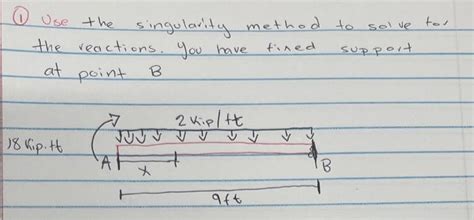 ① Use the singularity method to solve for
the reactions. You have fixed support
at point B
2 kip/ft
18 kip.ft
A
x
B
9ft